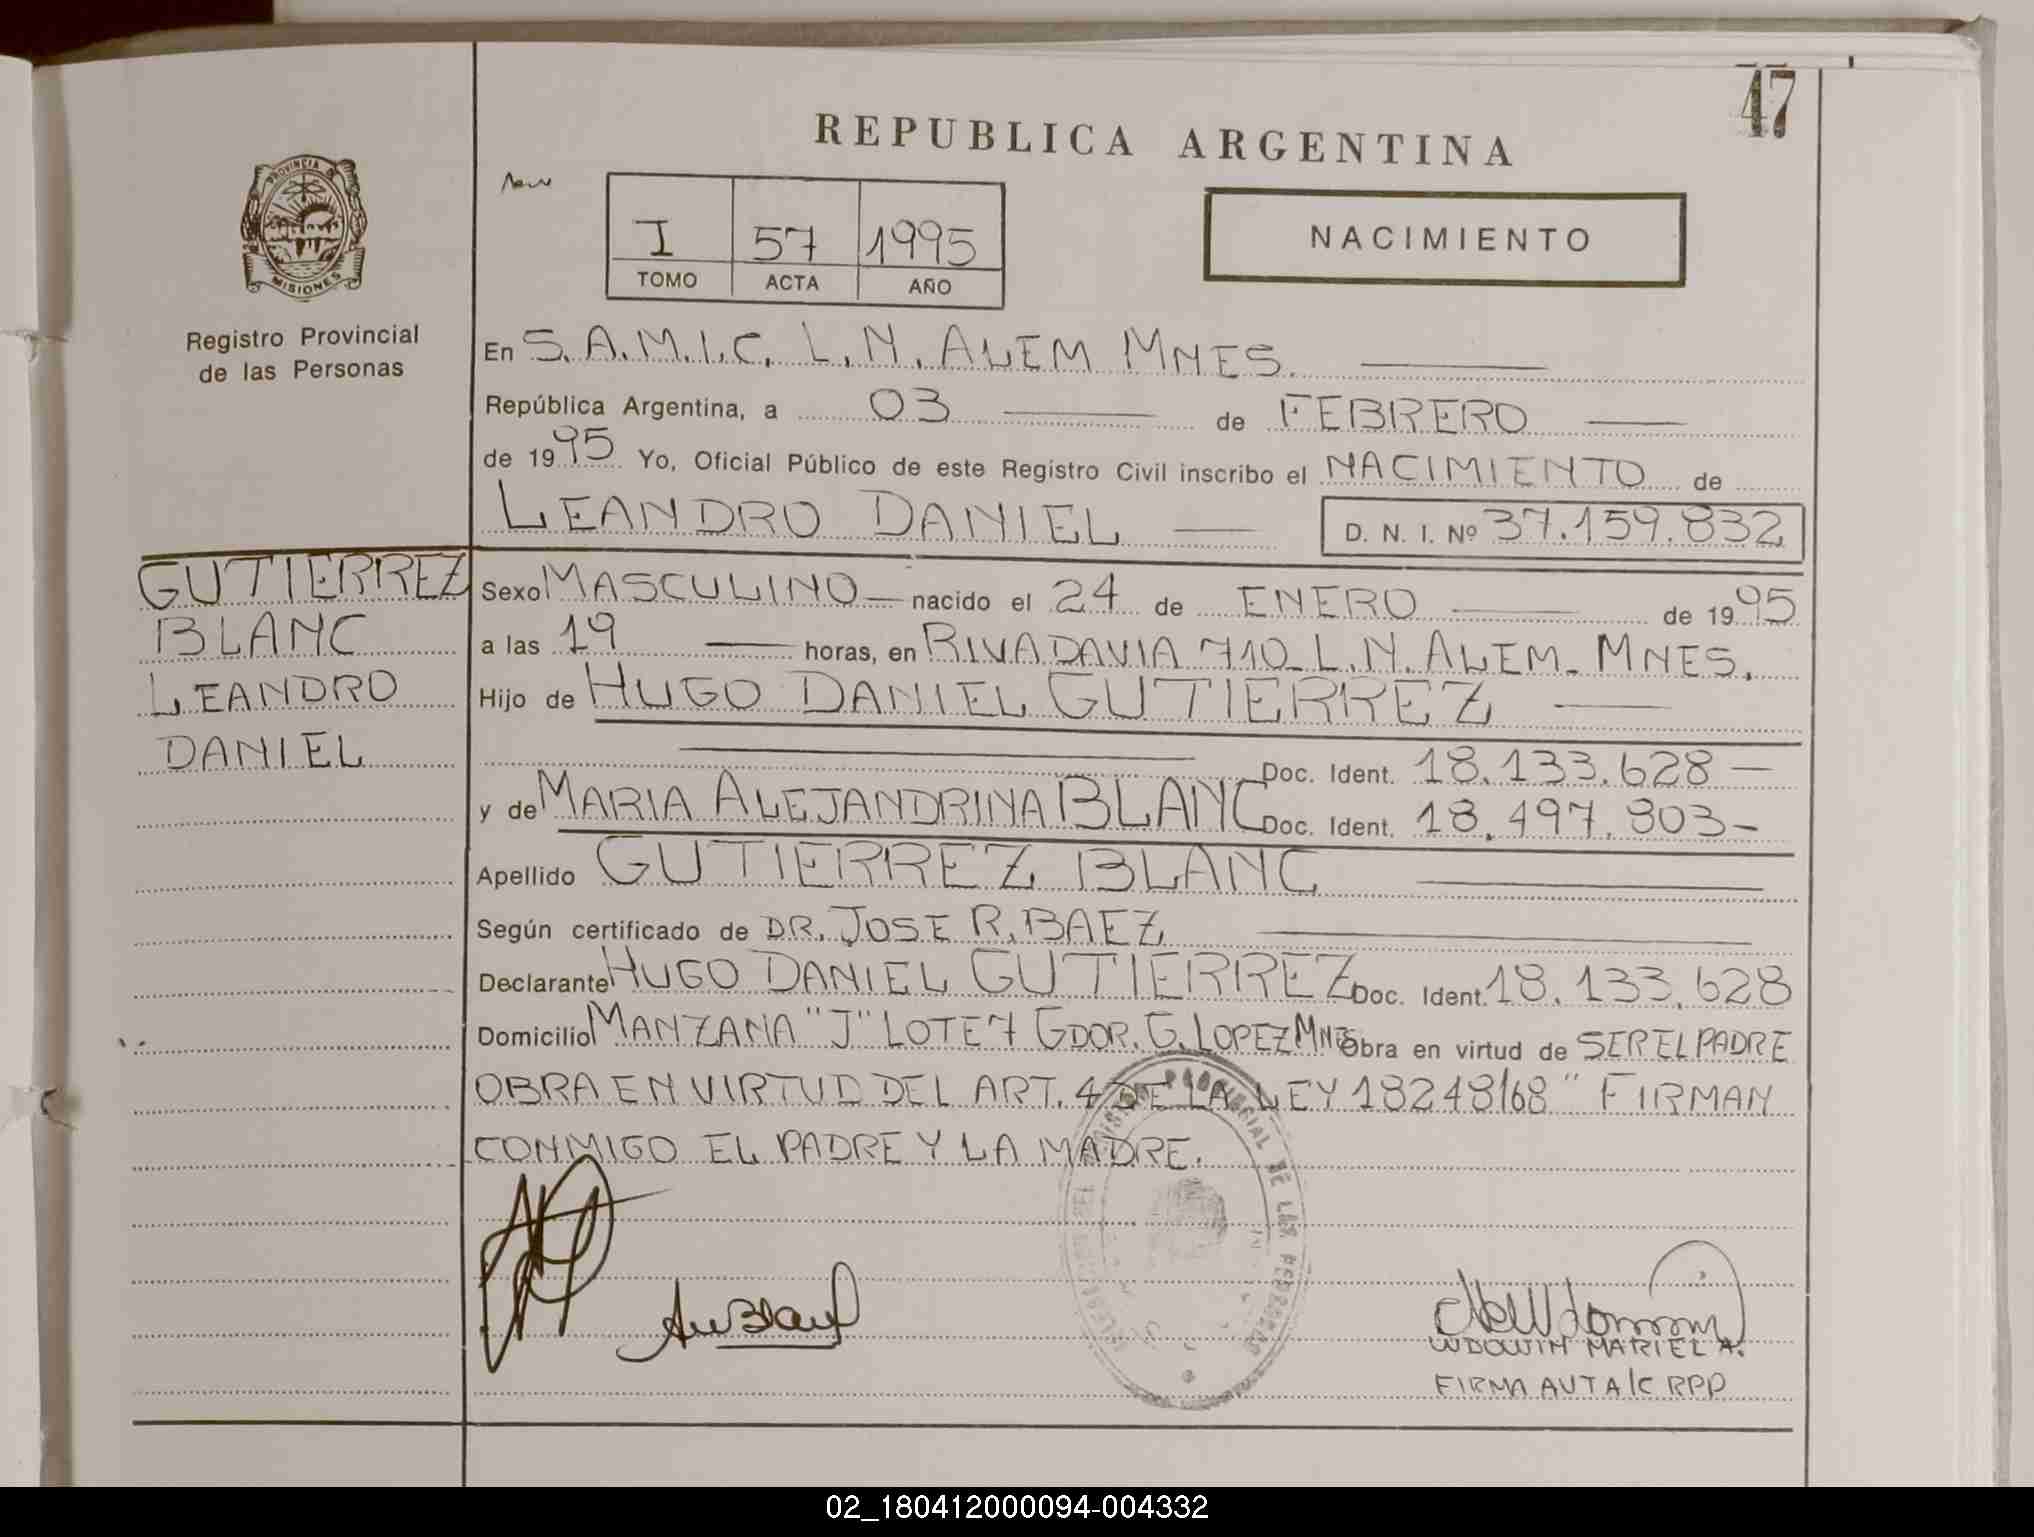 47
REPUBLICA ARGENTINA
PROVINCIA DE MISIONES
I 57 1995
TOMO ACTA AÑO
NACIMIENTO
Registro Provincial
de las Personas
En S.A.M.I.C. L.N. ALEM MNES.
República Argentina, a 03 de FEBRERO
de 1995 Yo, Oficial Público de este Registro Civil inscribo el NACIMIENTO de
LEANDRO DANIEL D. N. I. Nº 37.159.832
GUTIERREZ
BLANC
LEANDRO
DANIEL
Sexo MASCULINO nacido el 24 de ENERO de 1995
a las 19 horas, en RIVADAVIA 710 L.N. ALEM. MNES.
Hijo de HUGO DANIEL GUTIERREZ
Doc. Ident. 18.133.628
y de MARIA ALEJANDRINA BLANC Doc. Ident. 18.497.803
Apellido GUTIERREZ BLANC
Según certificado de DR. JOSE R. BAEZ
Declarante HUGO DANIEL GUTIERREZ Doc. Ident. 18.133.628
Domicilio MANZANA "J" LOTE 7 GDOR. G. LOPEZ MNES Obra en virtud de SER EL PADRE
OBRA EN VIRTUD DEL ART. 4 DE LA LEY 18248/68" FIRMAN
CONMIGO EL PADRE Y LA MADRE.
PROVINCIAL DE LAS PERSONAS
WDOWIN MARIEL A.
FIRMA AUT A/C RPP
02_180412000094-004332